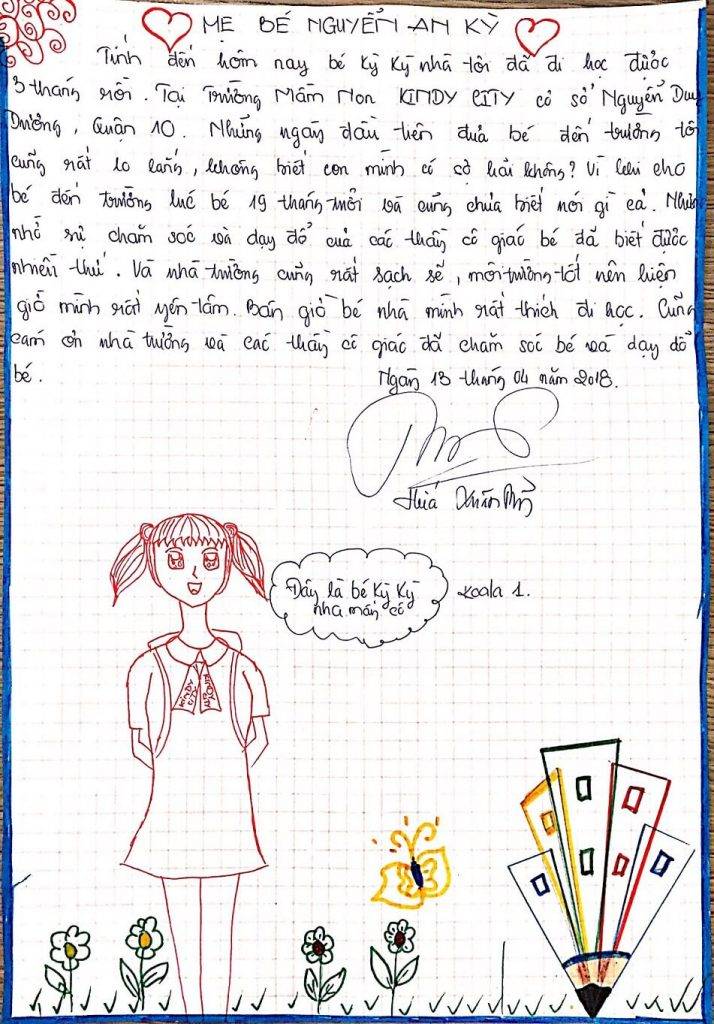 MẸ BÉ NGUYỄN AN KỲ
Tính đến hôm nay bé Kỳ Kỳ nhà tôi đã đi học được
3 tháng rồi. Tại Trường Mầm Non KINDY CITY cơ sở Nguyễn Duy
Dương, Quận 10. Những ngày đầu tiên đưa bé đến trường tôi
cũng rất lo lắng, không biết con mình có sợ hãi không? Vì khi cho
bé đến trường lúc bé 19 tháng tuổi và cũng chưa biết nói gì cả. Nhưng
nhờ sự chăm sóc và dạy dỗ của các thầy cô giác bé đã biết được
nhiều thứ. Và nhà trường cũng rất sạch sẽ, môi trường tốt nên hiện
giờ mình rất yên tâm. Bây giờ bé nhà mình rất thích đi học. Cũng
cám ơn nhà trường và các thầy cô giác đã chăm sóc bé và dạy dỗ
bé.
Ngày 13 tháng 04 năm 2018.
Đây là bé Kỳ Kỳ
nha mấy cô
Koala 1.
KINDY
CITY